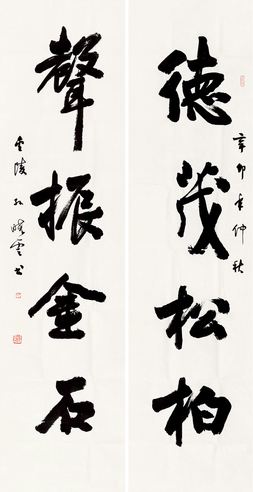 德茂松柏
辛卯年仲秋
聲振金石
金陵孙晓云书